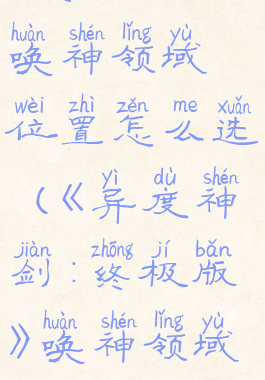 huàn shén lǐng yù
唤神领域
wèi zhì zěn me xuǎn
位置怎么选
yì dù shén
(《异度神
jiàn zhōng jí bǎn
剑:终极版
huàn shén lǐng yù
》唤神领域